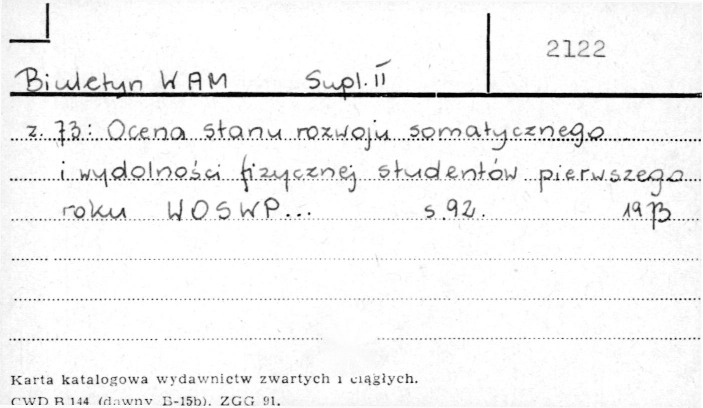 2122
Biuletyn WAM Supl. II
z. 73: Ocena stanu rozwoju somatycznego
i wydolności fizycznej studentów pierwszego
roku WOSWP... s. 92. 1973
Karta katalogowa wydawnictw zwartych i ciągłych.
CWD B 144 (dawny B-15b). ZGG 91.